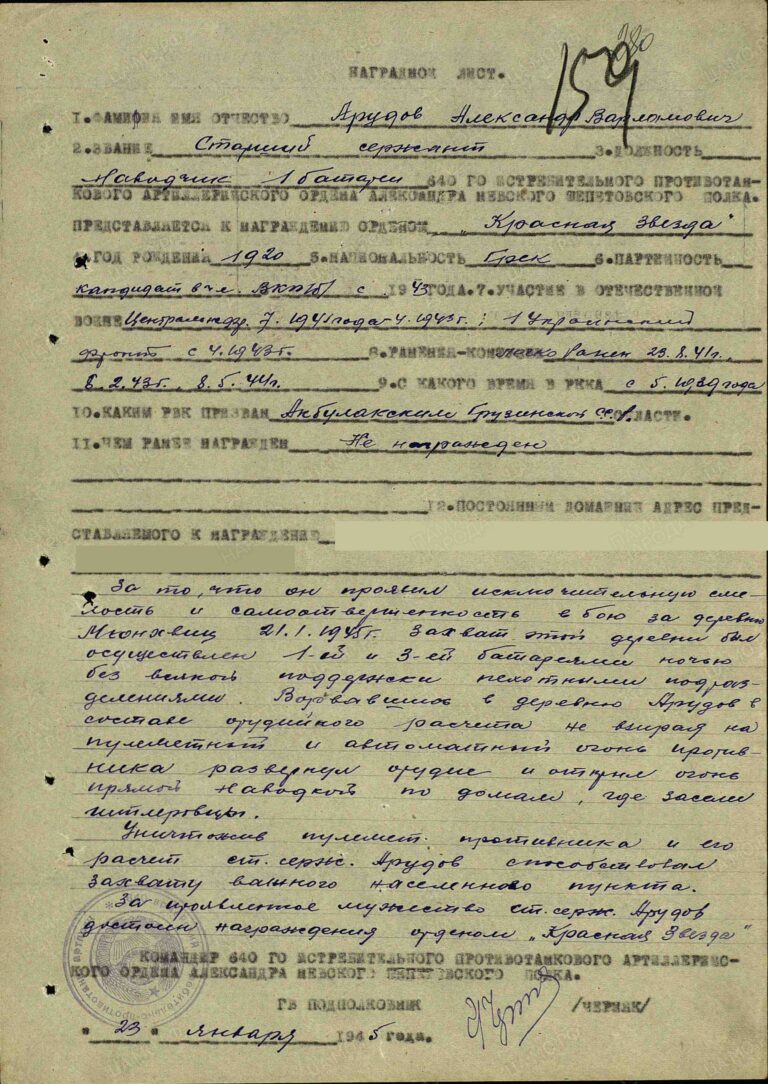 380
159
НАГРАДНОЙ ЛИСТ.
1.ФАМИЛИЯ ИМЯ ОТЧЕСТВО Арудов Александр Варламович
2.ЗВАНИЕ Старший сержант 3.ДОЛЖНОСТЬ
Наводчик 1 батареи 640 ГО ИСТРЕБИТЕЛЬНОГО ПРОТИВОТАН-
КОВОГО АРТИЛЛЕРИЙСКОГО ОРДЕНА АЛЕКСАНДРА НЕВСКОГО ШЕПЕТОВСКОГО ПОЛКА.
ПРЕДСТАВЛЯЕТСЯ К НАГРАЖДЕНИЮ ОРДЕНОМ „Красная Звезда"
ГОД РОЖДЕНИЯ 1920 5.НАЦИОНАЛЬНОСТЬ Грек 6.ПАРТИЙНОСТЬ
кандидат в чл. ВКП(б) с 1943 ГОДА.7.УЧАСТИЕ В ОТЕЧЕСТВЕННОЙ
ВОЙНЕ Централь 7.1941 года-4.1943г.; 1 Украинский
фронт с 4.1943г. 8.РАНЕНИЯ- ранен 23.8.41г.,
8.2.43г., 8.5.44г. 9.С КАКОГО ВРЕМЯ В РККА с 5.1939 года
10.КАКИМ РВК ПРИЗВАН Акбулакским Грузинской ОБЛАСТИ.
11.ЧЕМ РАНЕЕ НАГРАЖДЕН Не награжден
12.ПОСТОЯННЫЙ ДОМАШНИЙ АДРЕС ПРЕД-
СТАВЛЯЕМОГО К НАГРАЖДЕНИЮ
За то, что он проявил исключительную сме-
лость и самоотверженность в бою за деревню
Мюнхвиц 21.1.1945г. Захват этой деревни был
осуществлен 1-ой и 3-ей батареями ночью
без всякой поддержки пехотными подраз-
делениями. Ворвавшись в деревню Арудов в
составе орудийного расчета не взирая на
пулеметный и автоматный огонь против-
ника развернул орудие и открыл огонь
прямой наводкой по домам, где засели
гитлеровцы.
Уничтожив пулемет противника и его
расчет ст. серж. Арудов способствовал
захвату важного населенного пункта.
За проявленное мужество ст. серж. Арудов
достоин награждения орденом „Красная Звезда"
КОМАНДИР 640 ГО ИСТРЕБИТЕЛЬНОГО ПРОТИВОТАНКОВОГО АРТИЛЛЕРИЙС-
КОГО ОРДЕНА АЛЕКСАНДРА НЕВСКОГО ШЕПЕТОВСКОГО ПОЛКА.
ГВ ПОДПОЛКОВНИК /ЧЕРНЯК/
"23" января 1945 года.